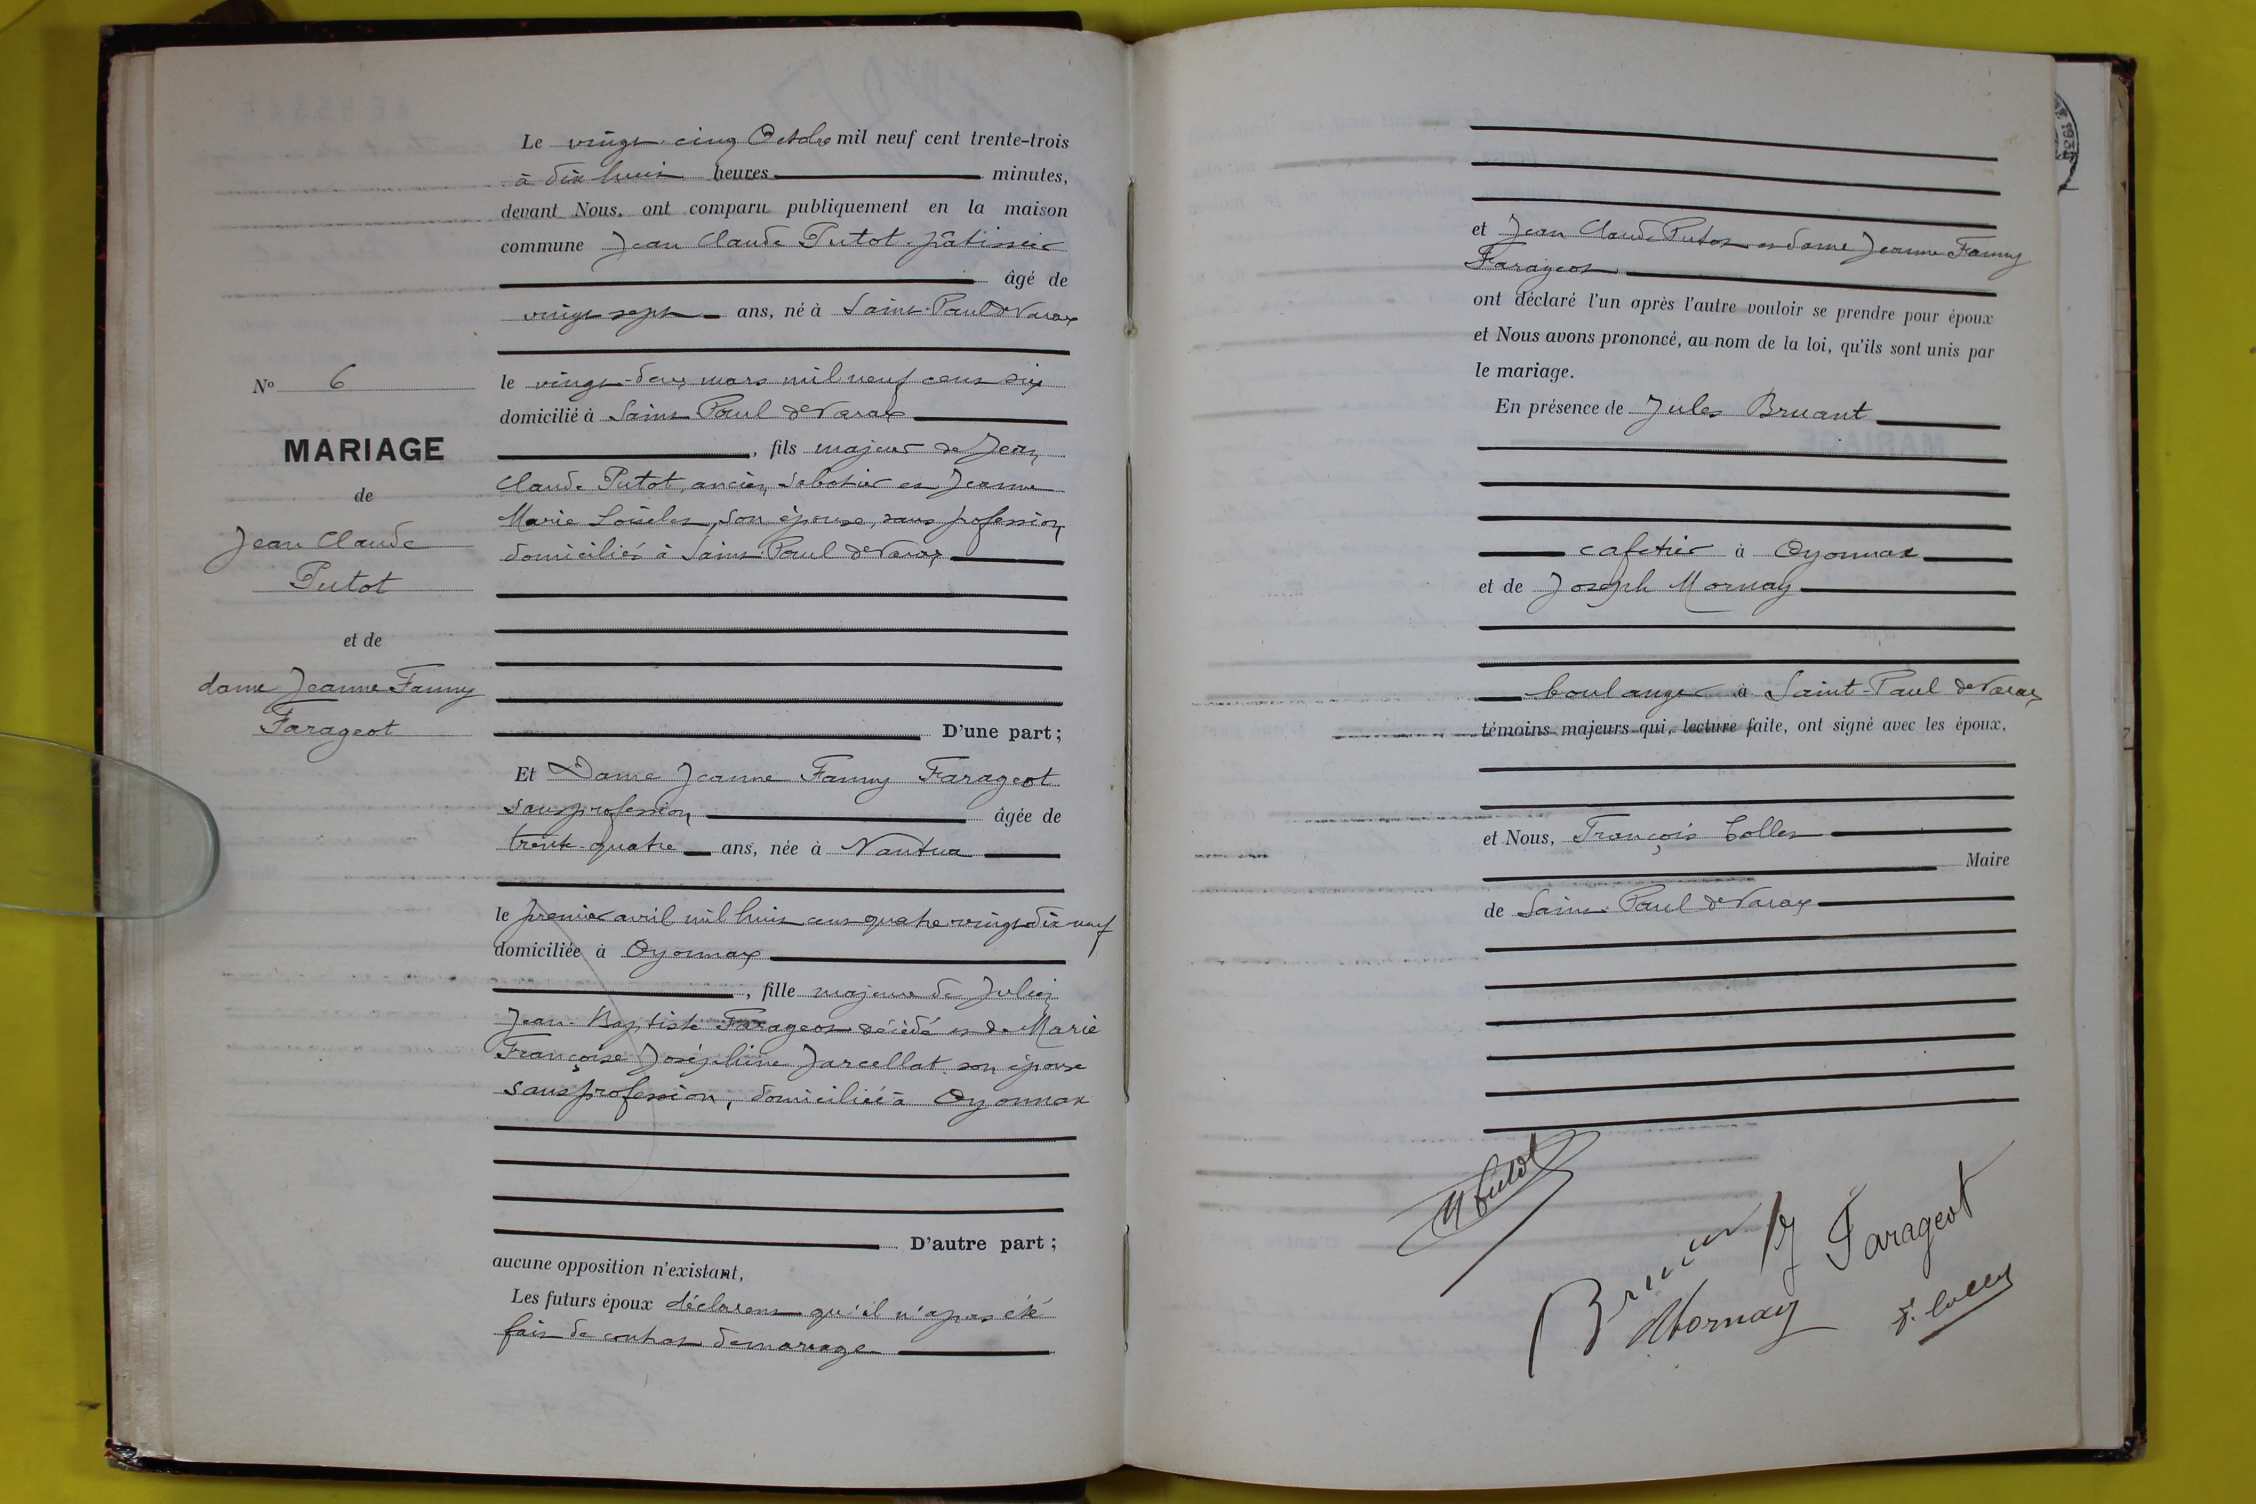 Le vingt-cinq Octobre mil neuf cent trente-trois
à dix huit heures minutes,
devant Nous, ont comparu publiquement en la maison
commune Jean Claude Putot, pâtissier
âgé de
vingt sept ans, né à Saint-Paul de Varax
le vingt-deux mars mil neuf cent six
domicilié à Saint Paul de Varax
, fils majeur de Jean
Claude Putot, ancien sabotier et Jeanne
Marie son épouse, sans profession
domiciliés à Saint-Paul de Varax
D'une part ;
Et Dame Jeanne Fanny Farageot
sans profession âgée de
trente-quatre ans, née à Nantua
le premier avril mil huit cent quatre vingt dix neuf
domiciliée à Oyonnax
, fille majeure de Julien
Jean-Baptiste Farageot décédé et de Marie
Françoise Joséphine Jarcellat son épouse
sans profession, domiciliée à Oyonnax
D'autre part ;
aucune opposition n'existant,
Les futurs époux déclarent qu'il n'a pas été
fait de contrat de mariage
No 6
MARIAGE
de
Jean Claude
Putot
et de
dame Jeanne Fanny
Farageot
et Jean Claude Putot et dame Jeanne Fanny
Farageot
ont déclaré l'un après l'autre vouloir se prendre pour époux
et Nous avons prononcé, au nom de la loi, qu'ils sont unis par
le mariage.
En présence de Jules Bruant
cafetier à Oyonnax
et de Joseph Mornay
boulanger à Saint-Paul de Varax
témoins majeurs qui, lecture faite, ont signé avec les époux,
et Nous, François Collet
Maire
de Saint Paul de Varax
Putot
Bruant
J Farageot
Mornay
F. Collet